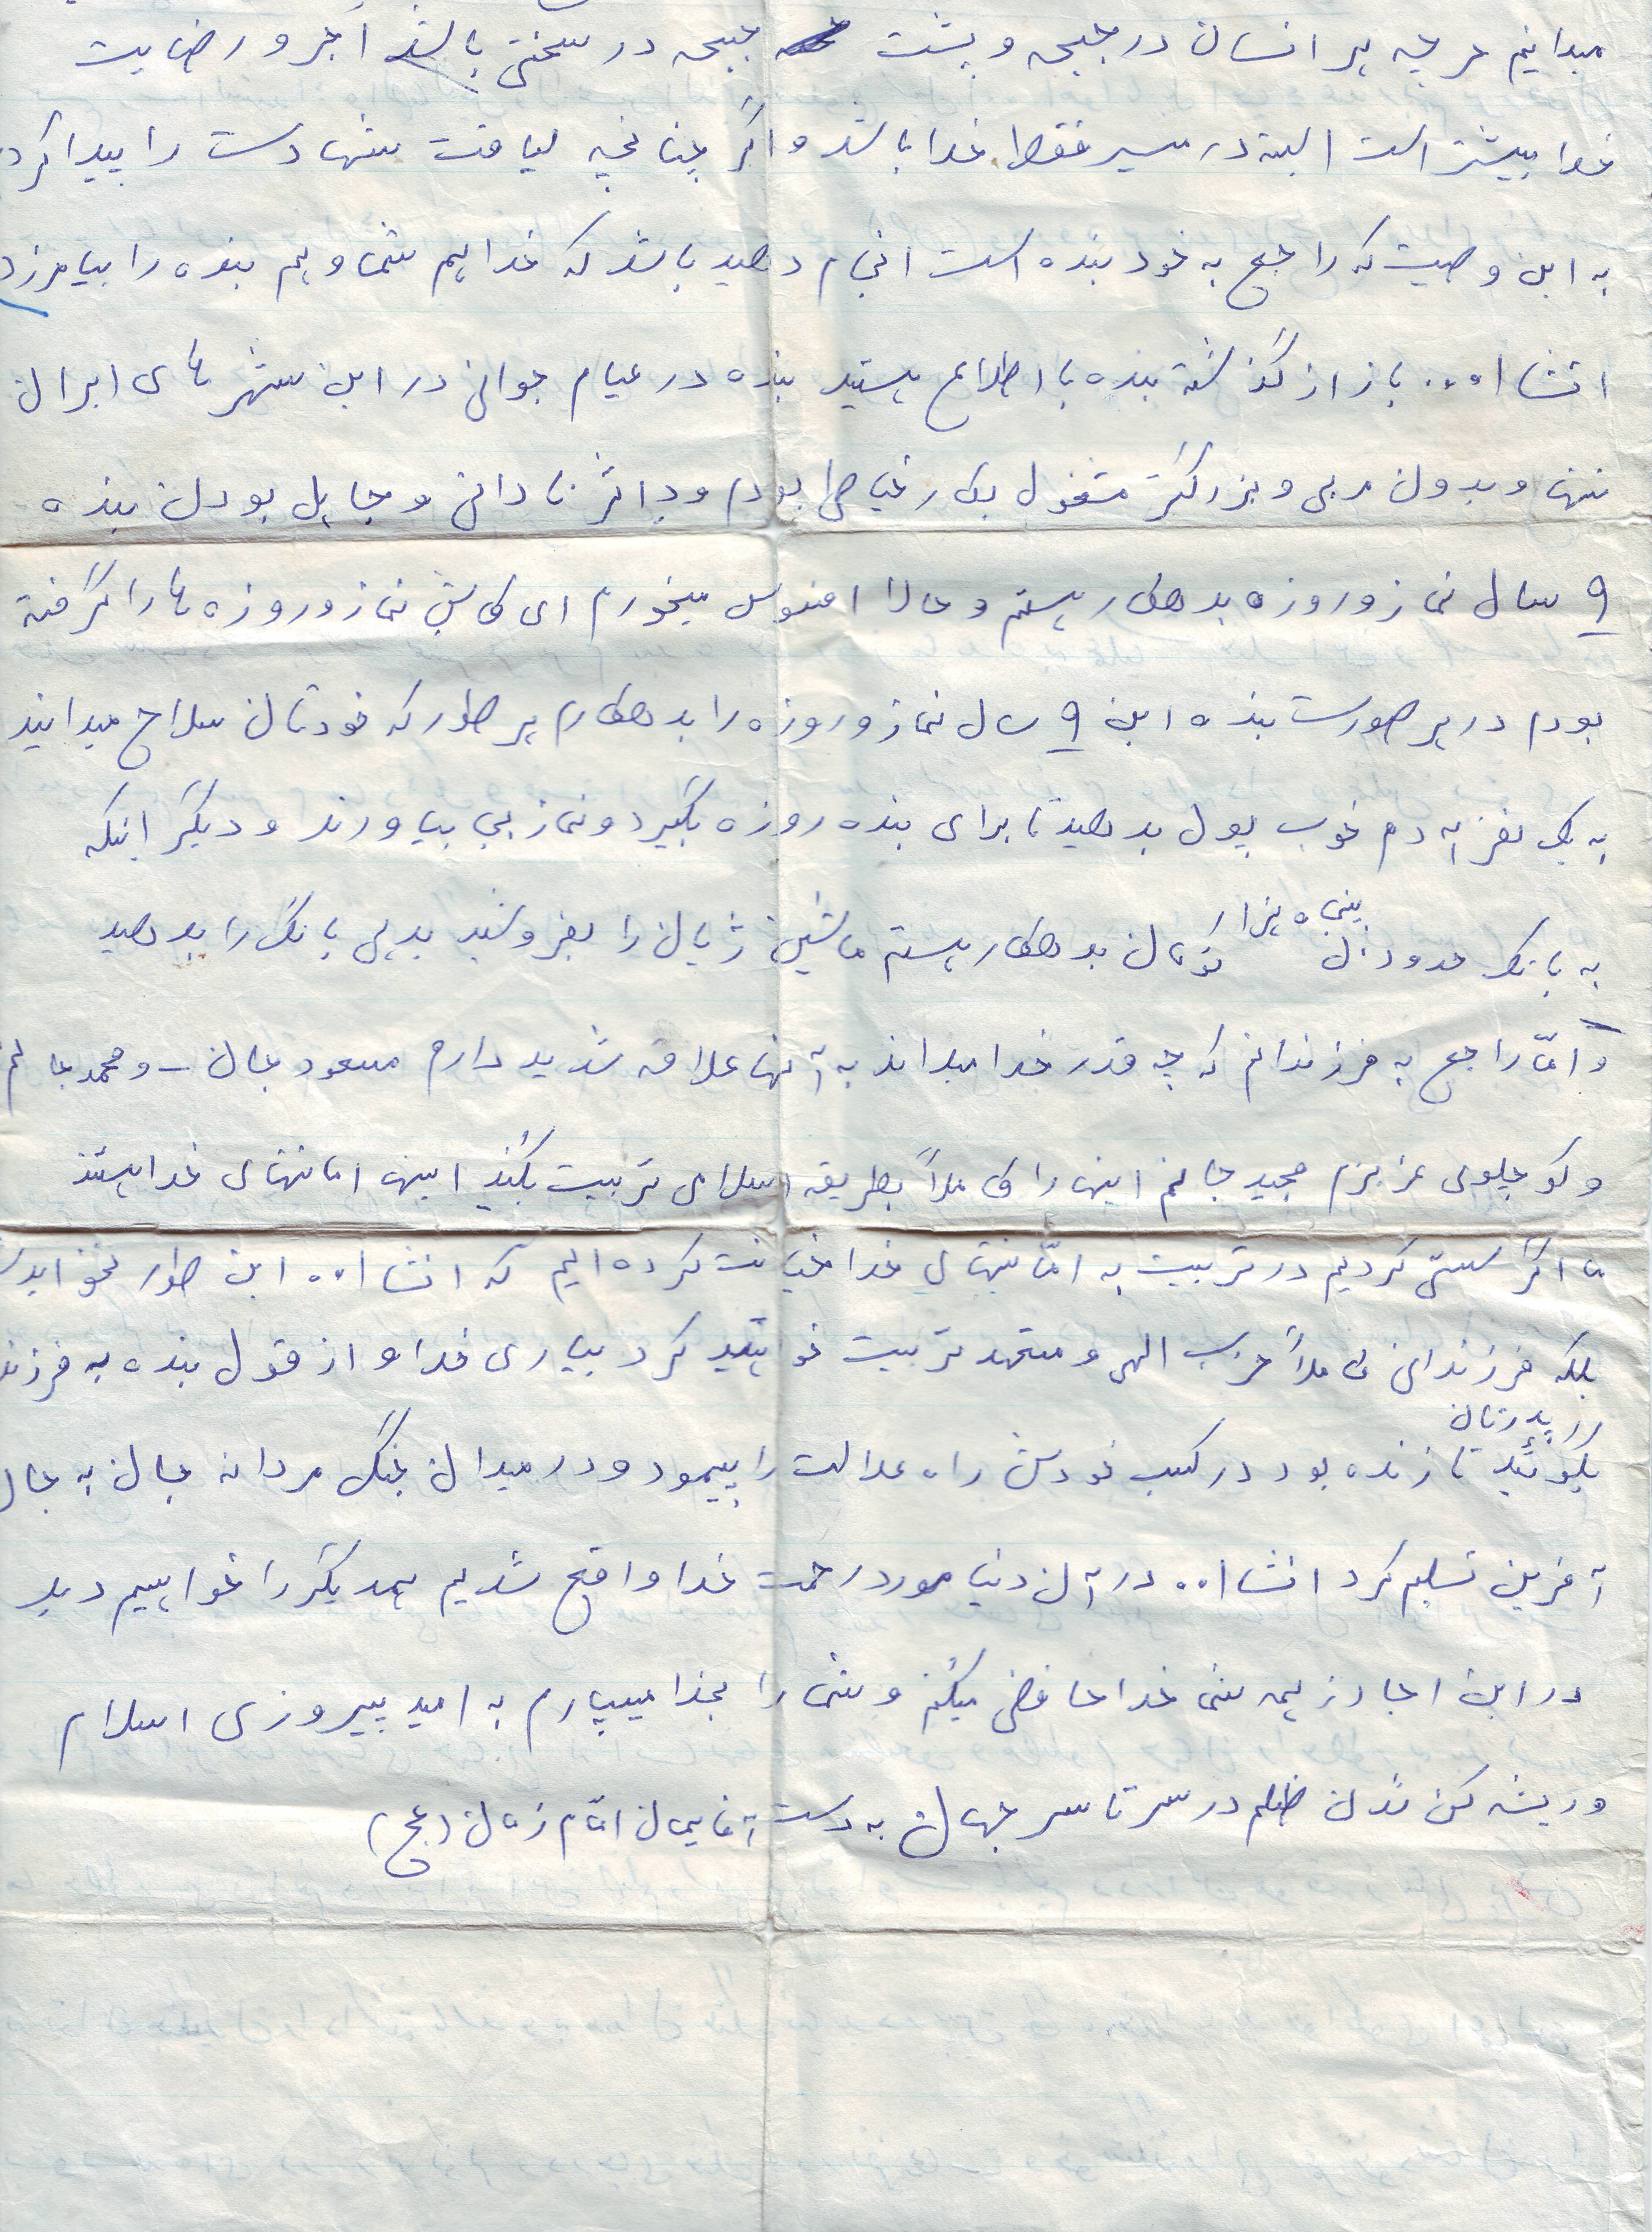 میدانیم هر چه هر انسان در جبهه و پشت جبهه در سختی باشد اجر و رضایت
خدا بیشتر است البته در مسیر فقط خدا باشد و اگر چنانچه لیاقت شهادت را پیدا کرد
به این وصیت که راجع به خود بنده است انجام دهید باشد که خدا هم شما و هم بنده را بیامرزد
انشا ا... باز از گذشته بنده با اطلاع هستید بنده در عیام جوانی در این شهر های ایران
تنها و بدون مربی و بزرگتر مشغول بکار خیاطی بودم و بر اثر نادانی و جاهل بودن بنده
۹ سال نماز و روزه بدهکار هستم و حالا افسوس میخورم ای کاش نماز و روزه ها را گرفته
بودم در هر صورت بنده این ۹ سال نماز و روزه را بدهکارم هر طور که خودتان سلاح میدانید
به یک نفر آدم خوب پول بدهید تا برای بنده روزه بگیرد و نماز بجا بیاورند و دیگر اینکه
پنجاه هزار
به بانک حدود تومان بدهکار هستم ماشین ژیان را بفروشید بدهی بانک را بدهید
و امّا راجع به فرزندانم که چه قدر خدا میداند به آنها علاقه شدید دارم مسعود جان - و محمد جانم
و کوچلوی عزیزم مجید جانم اینها را کاملاً بطریقه اسلامی تربیت بکنید اینها امانتهای خدا هستند
ما اگر سستی کردیم در تربیت به امّانتهای خدا خیانت کرده ایم که انشا ا.. این طور نخواهد
بلکه فرزندانی کاملاً حزب الهی و متعهد تربیت خواهید کرد بیاری خدا و از قول بنده به فرزند
پدرتان
بگوئید تا زنده بود در کسب خودش راه عدالت را پیمود و در میدان جنگ مردانه جان به جان
آفرین تسلیم کرد انشا ا.. در آن دنیا مورد رحمت خدا واقع شدیم همدیگر را خواهیم دید
در این اجا از همه شما خداحافضی میکنم و شما را بخدا میسپارم به امید پیروزی اسلام
و ریشه کن شدن ظلم در سرتاسر جهان به دست آقایمان امّام زمان (عج)